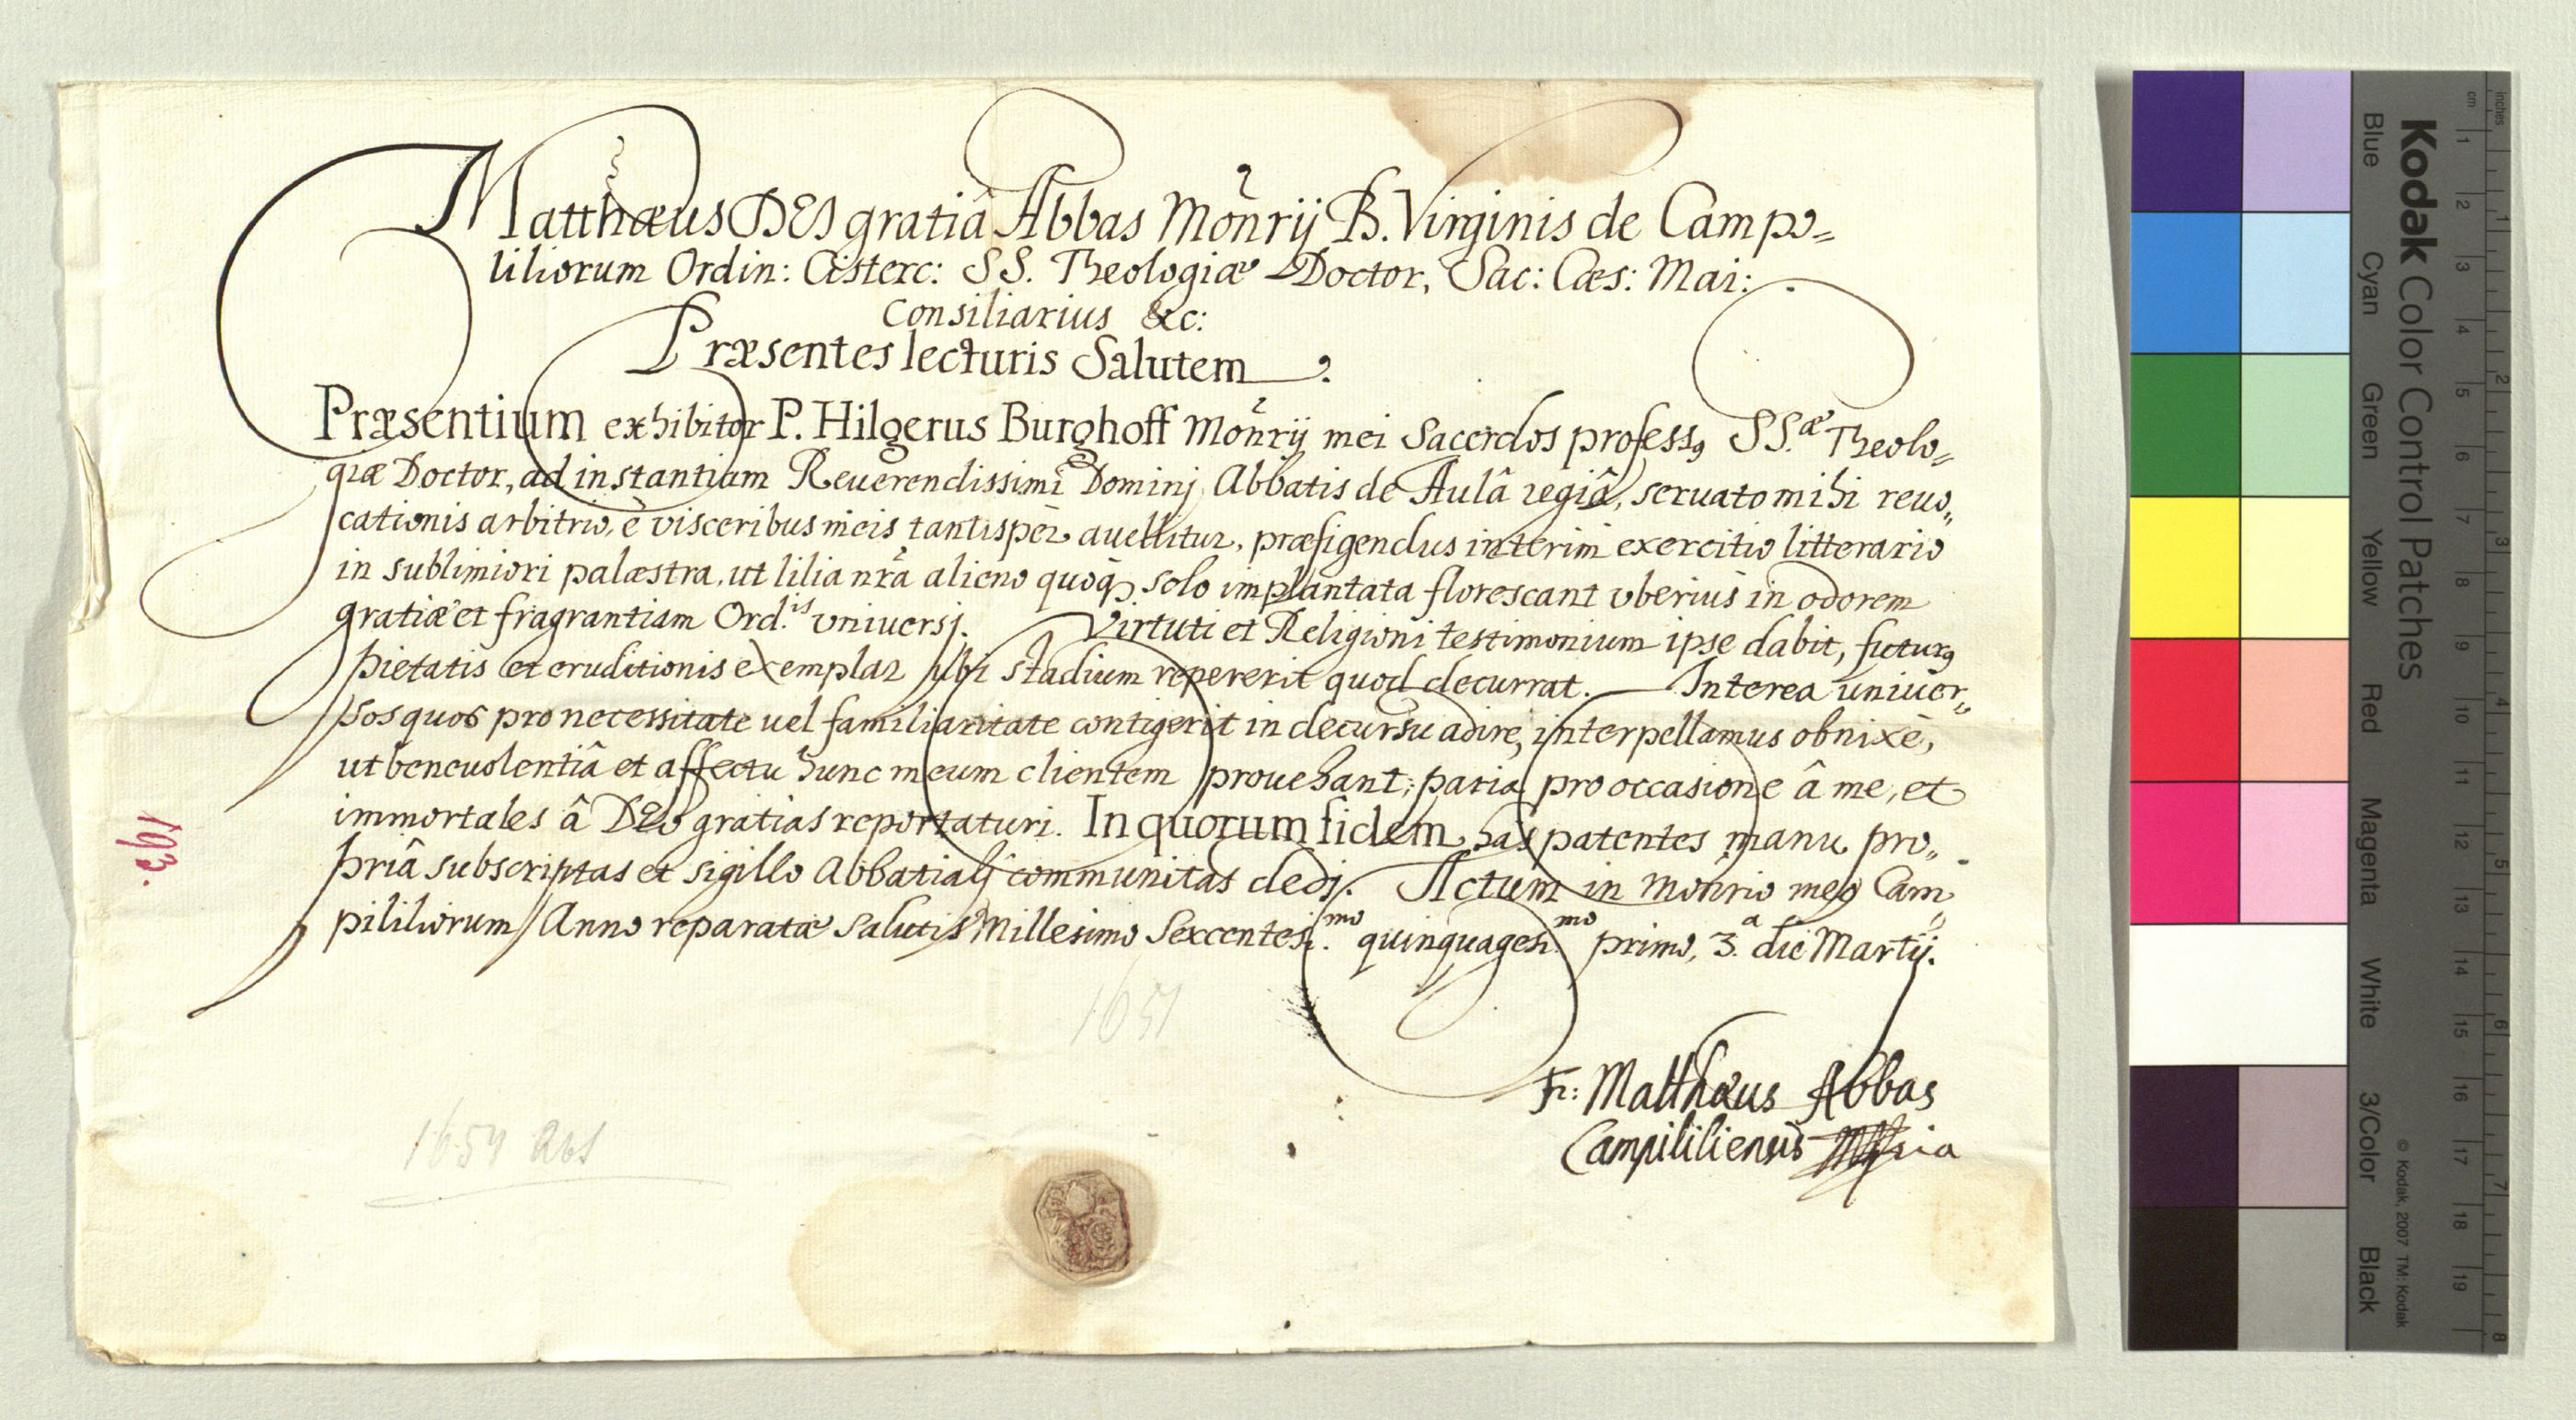 Matthæus DEI gratiâ Abbas Monrij B. Virginis de Campo=
liliorum Ordin: Cisterc: SS. Theologiæ Doctor, Sac: Cæs: Mai:
Consiliarius &c:
Præsentes lecturis Salutem.
Præsentium exhibitor P. Hilgerus Burghoff Monrij mei Sacerdos professꝰ SS.æ Theolo=
giæ Doctor, ad instantiam Reuerendissimi Dominj Abbatis de Aulâ regiâ, seruato mihi reuo„
cationis arbitrio, è visceribus meis tantisper auellitur, præfigendus interim exercitio litterario
in sublimiori palæstra, ut lilia nr̃a alieno quoqꝫ solo implantata florescant vberius in odorem
gratiæ et fragrantiam Ord.is vniuersj. Virtuti et Religioni testimonium ipse dabit, futurꝰ
pietatis et eruditionis exemplar ubi stadium repererit quod decurrat. Interea uniuer„
sos quos pro necessitate uel familiaritate contigerit in decursu adire, interpellamus obnixè,
ut beneuolentiâ et affectu hunc meum clientem prouehant; paria pro occasione â me, et
immortales â DEo gratias reportaturi. In quorum fidem has patentes manu pro„
priâ subscriptas et sigillo Abbatialj communitas dedj. Actum in monrio meo Cam„
pililiorum Anno reparatæ salutis Millesimo Sexcentesi.mo quinquagesi.mo primo, 3.a die Martij.
1651
Fr: Matthæus Abbas
Campililiensis Mpria
1651 Abs
193.
Kodak Color Control Patches
Blue Cyan Green Yellow Red Magenta White 3/Color Black
© Kodak, 2007 TM: Kodak
cm 1 2 3 4 5 6 7 8 9 10 11 12 13 14 15 16 17 18 19
inches 1 2 3 4 5 6 7 8